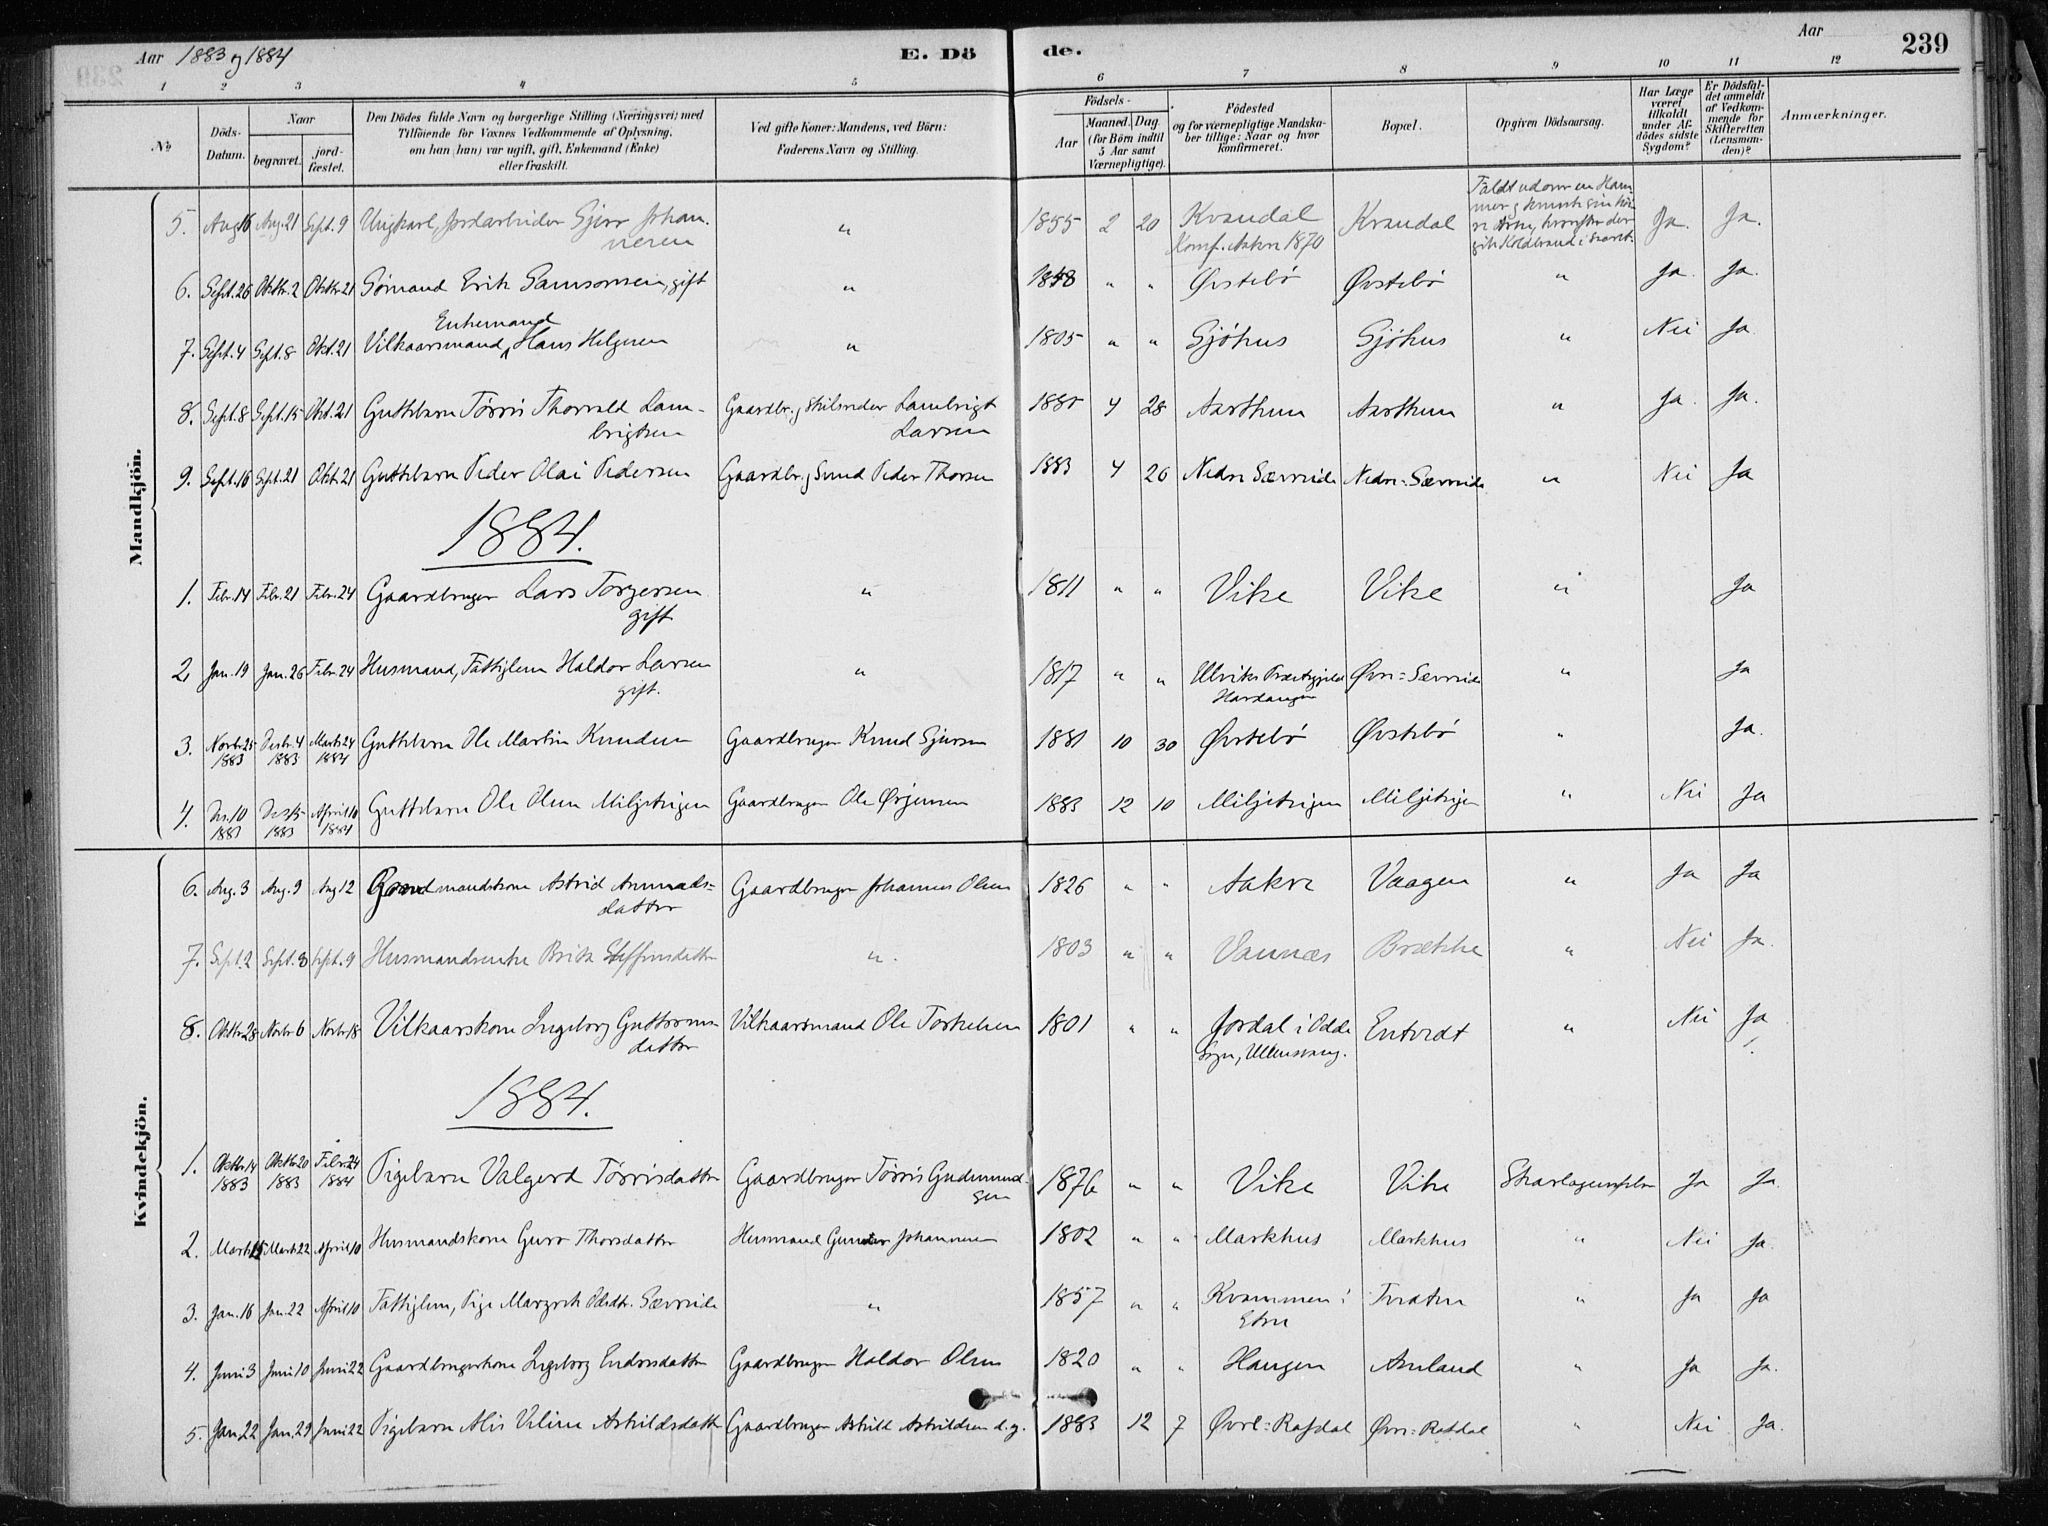 Aar 1883 og 1884
E. Dö
de.
Aar
239
1 2 3 4 5 6 7 8 9 10 11 12
No
Döds-Datum.
Naar
begravet.
jord-fæstet.
Den Dödes fulde Navn og borgerlige Stilling (Næringsvei) med
Tilföiende for Voxnes Vedkommende af Oplysning,
om han (hun) var ugift, gift, Enkemand (Enke)
eller fraskilt.
Ved gifte Koner: Mandens, ved Börn:
Faderens Navn og Stilling.
Födsels-
Aar
Maaned. Dag
(for Börn indtil
5 Aar samt
Værnepligtige).
Födested
og for værnepligtige Mandska-
ber tillige: Naar og hvor
konfirmeret.
Bopæl.
Opgiven Dödsaarsag.
Har Læge
været
tilkaldt
under Af-
dödes sidste
Sygdom?
Er Dödsfal-
det anmeldt
af Vedkom-
mende for
Skifteretten
(Lensman-
den)?
Anmærkninger.
Mandkjön.
5. Aug 16 Aug. 21 Sept. 9 Ungkarl, Jordarbeider Sjur Johan-
nesen " 1855 2 20 Kvandal
Konf. Aakre 1870 Kvandal Faldt udover en Ham-
mer og knuste sin
Arm, hvorefter der
gik Koldbrand i Saaret. Ja. Ja.
6. Sept. 26 Oktbr. 2 Oktbr 21 Sømand Erik Samsonsen, gift " 1848 " " Øvstebø Øvstebø " Ja Ja.
Enkemand
7. Sept. 4 Sept. 8 Okt. 21 Vilkaarsmand, Hans Helgesen " 1805 " " Sjøhus Sjøhus " Nei Ja
8. Sept. 8 Sept. 15 Okt. 21 Guttebarn Tørris Thorvald Lam-
brigtsen Gaardbr. og Skibsreder Lambrigt
Larsen 1880 4 28 Aarthun Aarthun " Ja. Ja.
9. Sept. 16 Sept. 21 Okt. 21 Guttebarn Peder Olai Pedersen Gaardbr. og Smed Peder Thorsen 1883 4 26 Nedre Sævreide Nedre-Sævreide " Nei Ja
1884.
1. Febr. 14 Febr. 21 Febr. 24 Gaardbruger Lars Torgersen
gift " 1811 " " Vike Vike " Ja
2. Jan. 19 Jan. 26 Febr. 24 Husmand, Fattiglem Haldor Larsen
gift. " 1817 " " Ulviks Præstegjeld
Hardanger Øvre-Sævreide " Ja
3. Novbr 25
1883 Desbr. 4
1883 Marts 24
1884 Guttebarn Ole Martin Knudsen Gaardbruger Knud Sjursen 1881 10 30 Øvstebø Øvstebø " Ja.
4. Des. 10
1883 Des 15
1883 April 10
1884 Guttebarn Ole Olsen Miljeteigen Gaardbruger Ole Ørjensen 1883 12 10 Miljeteigen Miljeteigen " Nei Ja
Kvindekjön.
6. Aug. 3 Aug. 9 Aug 12 Gaardmandskone Astrid Amunds-
datter Gaardbruger Johannes Olsen 1826 " " Aakre Vaagen " Ja Ja
7. Sept. 2 Sept. 8 Sept. 9 Husmandsenke Brita Steffensdatter " 1803 " " Vannæs Brække " Nei Ja.
8. Oktbr 28 Novbr 6 Novbr 18 Vilkaarskone Ingeborg Guttorms-
datter Vilkaarsmand Ole Torkelsen 1801 " " Jordal i Odde
Sogn, Ullensvang. Entvedt " Nei Ja.
1884.
1. Oktbr 14
1883 Oktbr 20
1883 Febr. 24
1884 Pigebarn Valgerd Tørrisdatter Gaardbruger Tørris Gudmund-
sen 1876 " " Vike Vike Skarlagensfeber Ja Ja.
2. Marts 15 Marts 22 April 10 Husmandskone Guro Thorsdatter Husmand Gunder Johannesen 1802 " " Markhus Markhus " Nei Ja.
3. Jan. 16 Jan. 22 April 10 Fattiglem, Pige Margrete Olsdtr. Sævreide " 1857 " " Kvammen i
Etne Tveaten " Ja Ja
4. Juni 3 Juni 10 Juni 22 Gaardbrugerkone Ingeborg Endresdatter Gaardbruger Haldor Olsen 1820 " " Haugen Amland " Ja Ja.
5. Jan 22 Jan. 29 Juni 22 Pigebarn Alis Veline Askildsdatter Gaardbruger Askild Askildsen d. y. 1883 12 7 Øvre-Rafdal Øvre-Rafdal " Nei Ja.